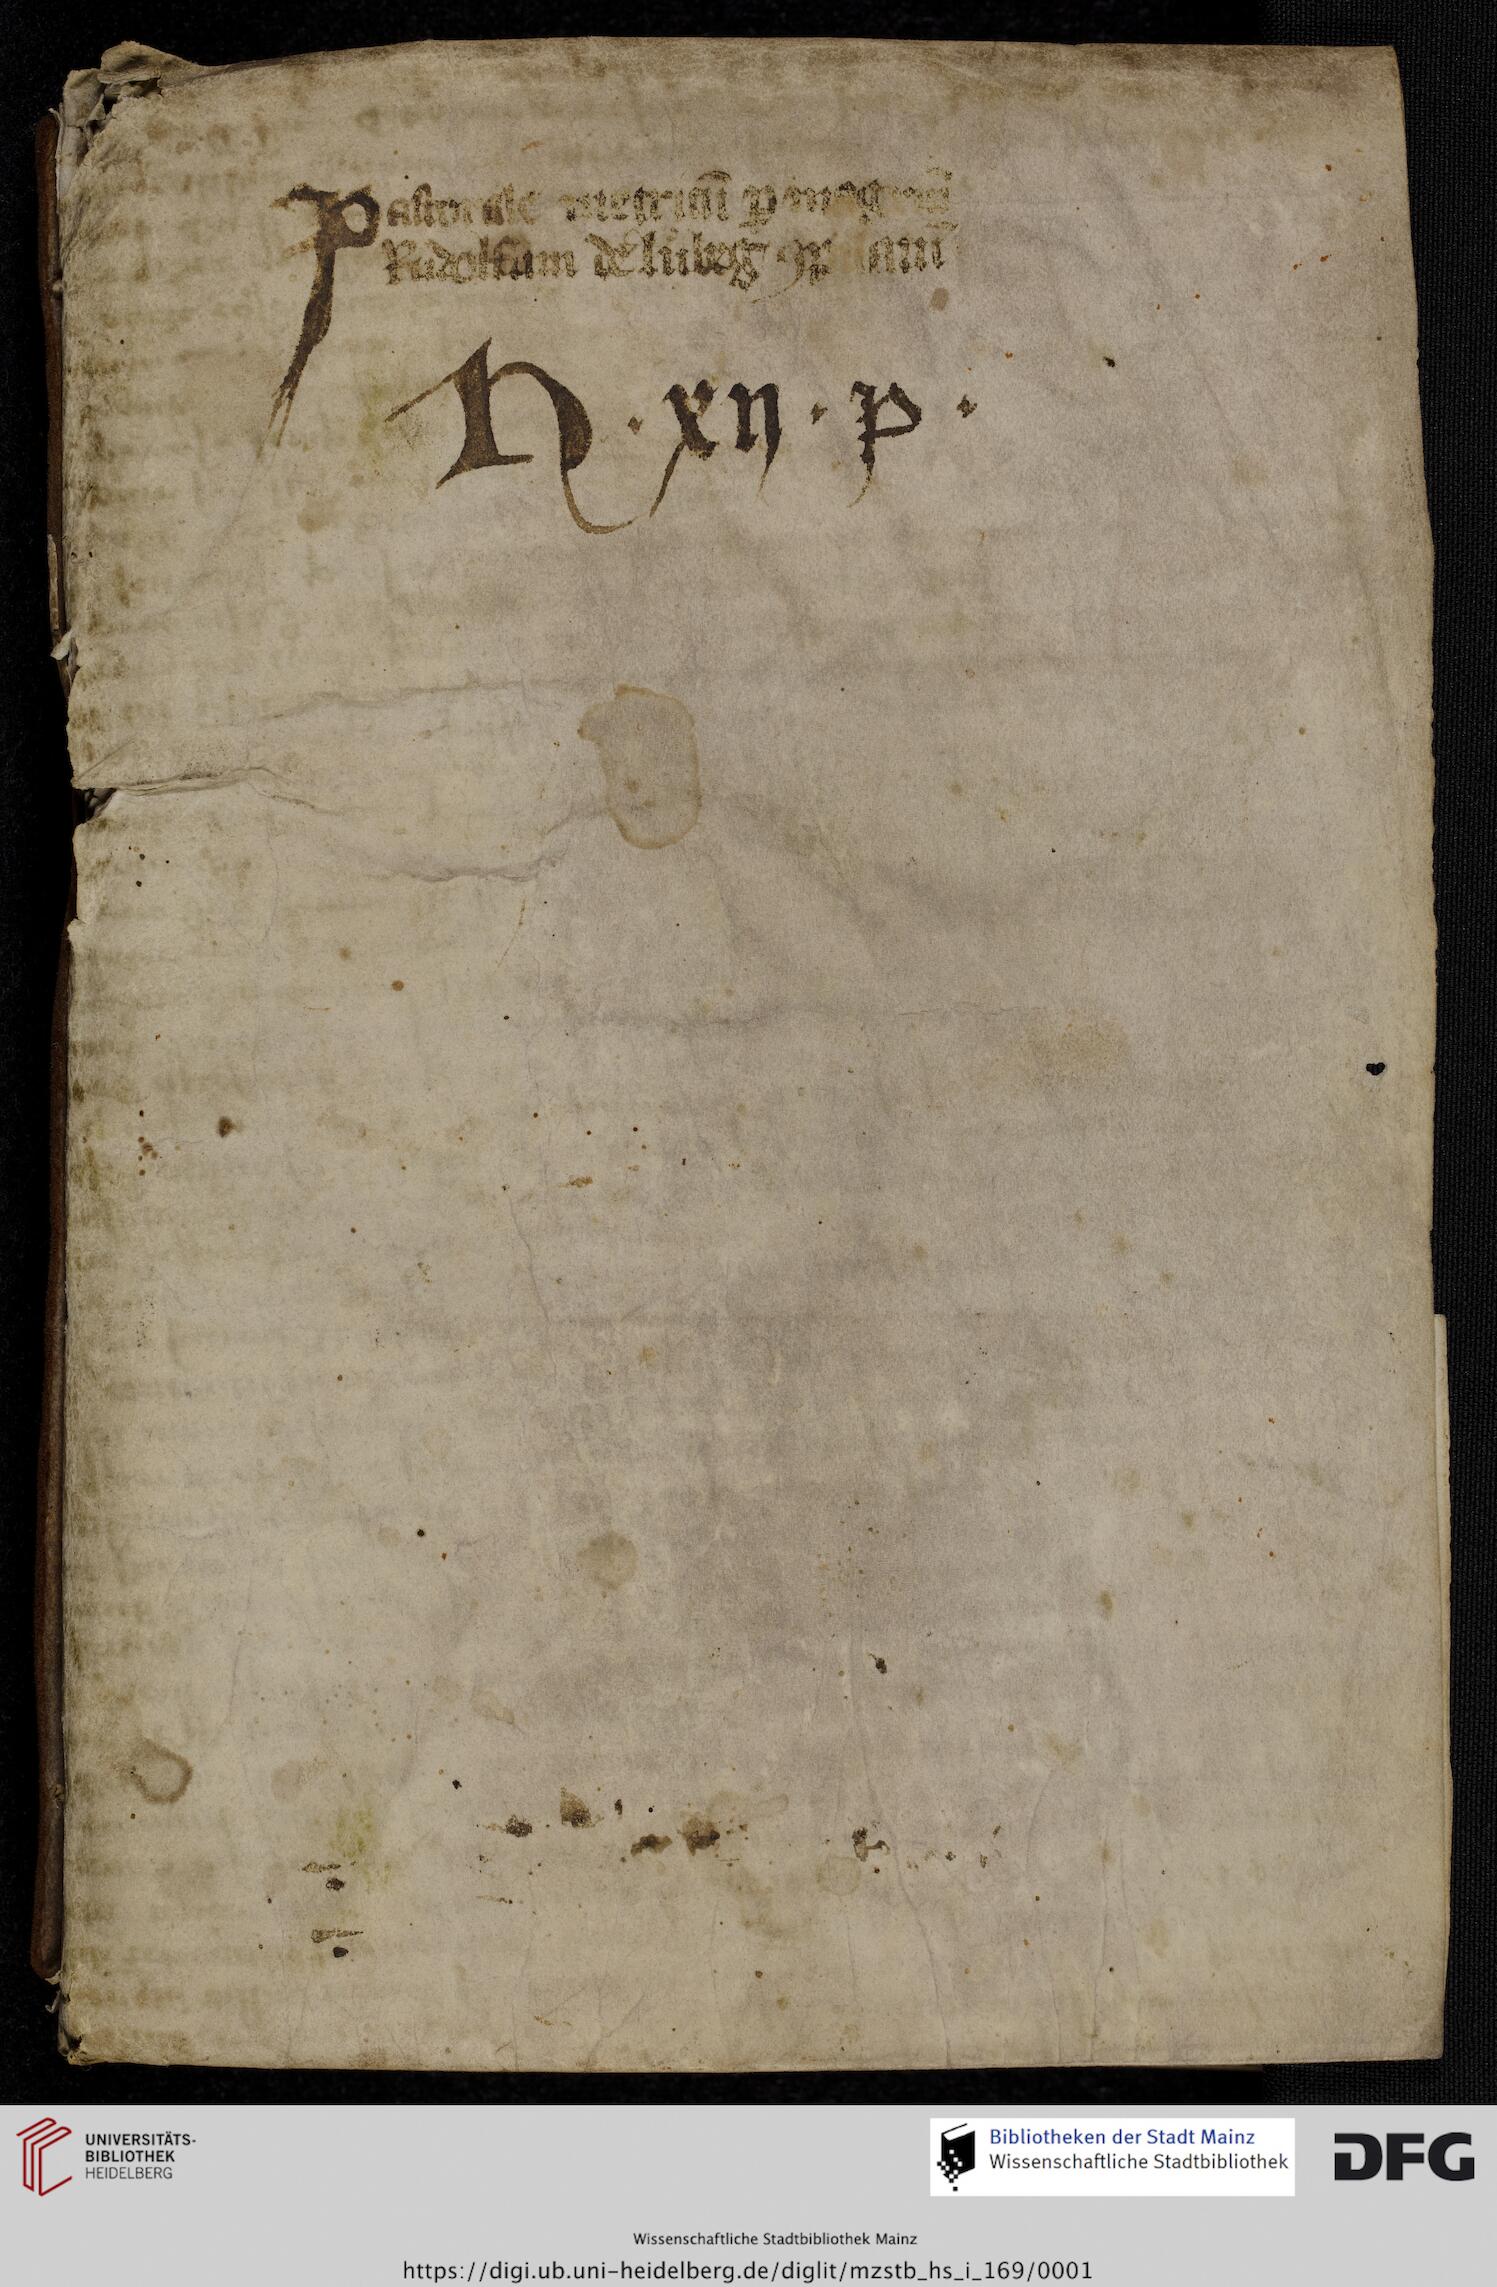 Pastorale metricū ꝑ magr̄m
Rudolfum de lubeg
N · xij · p ·
UNIVERSITÄTS-
BIBLIOTHEK
HEIDELBERG
Bibliotheken der Stadt Mainz
Wissenschaftliche Stadtbibliothek
DFG
Wissenschaftliche Stadtbibliothek Mainz
https://digi.ub.uni-heidelberg.de/diglit/mzstb_hs_i_169/0001